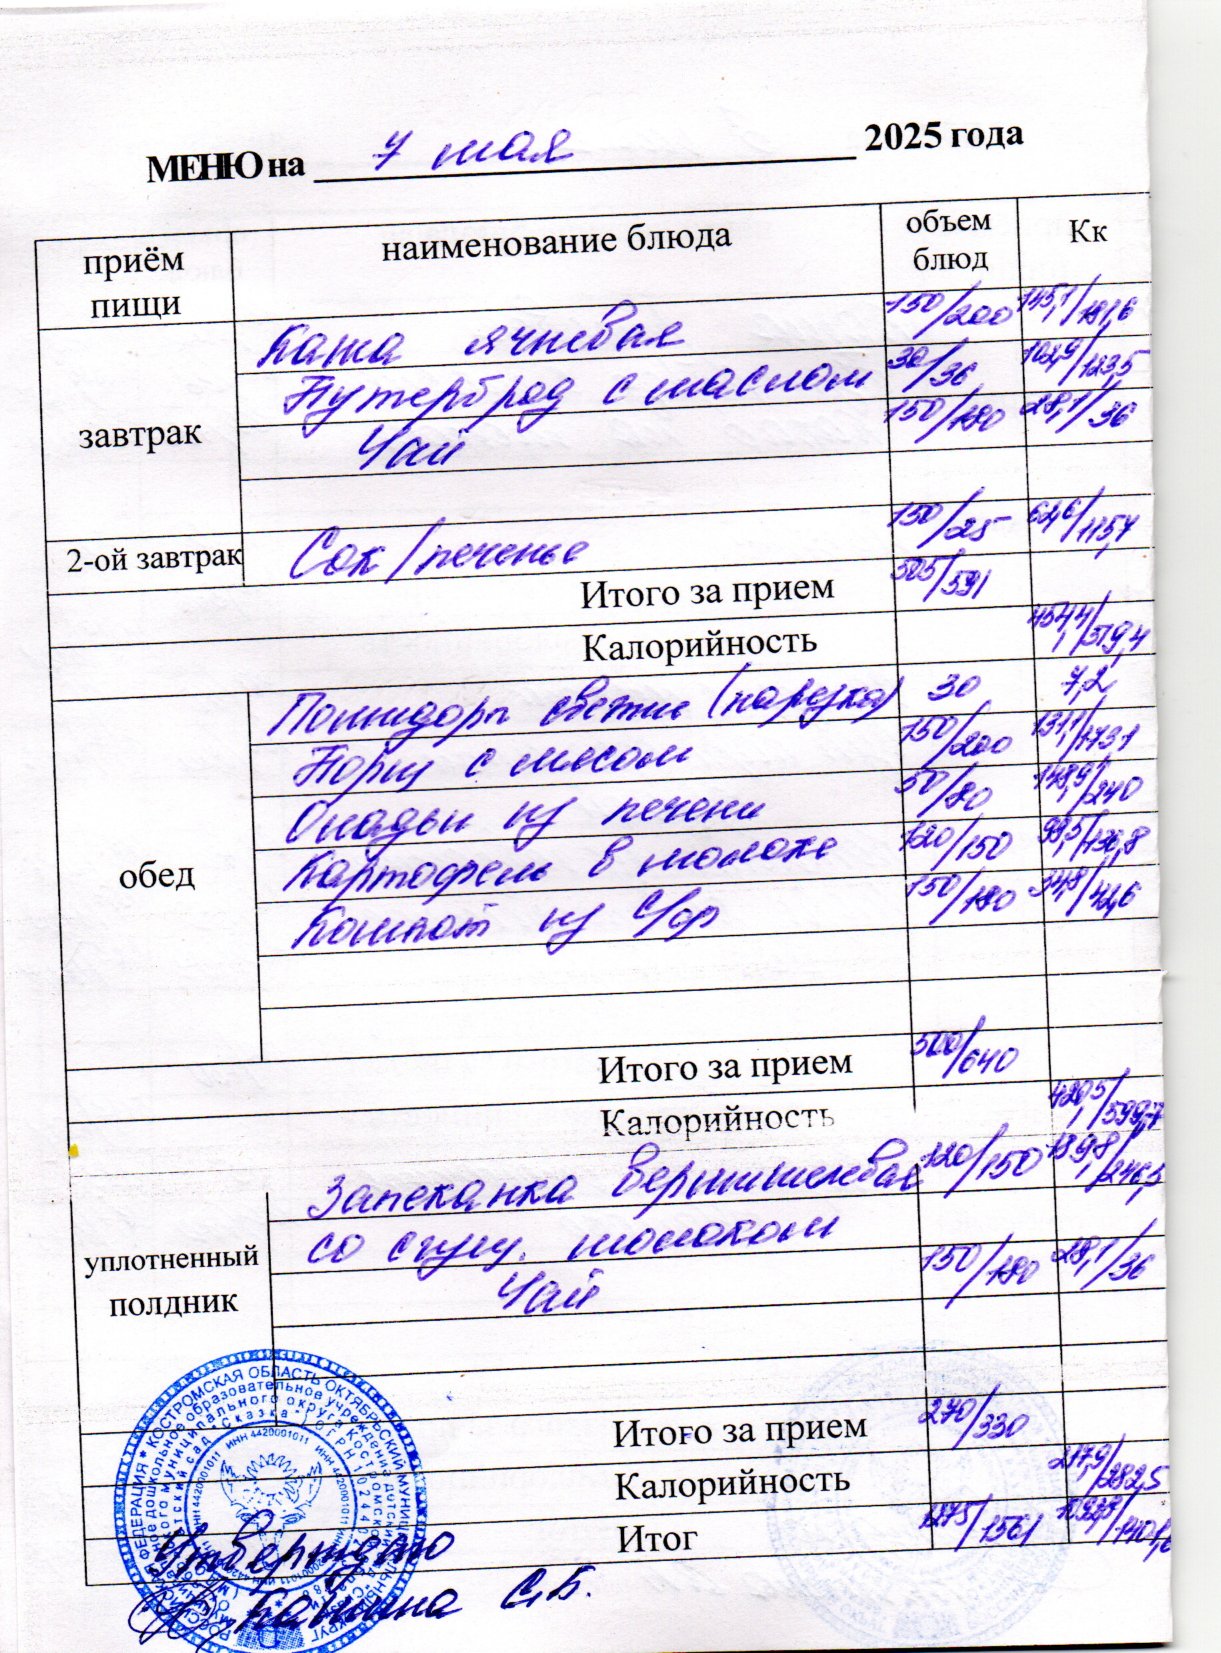 МЕНЮ на 7 мая 2025 года
приём пищи наименование блюда объем блюд Кк
завтрак
Каша ячневая 150/200 145,1/191,6
Бутерброд с маслом 30/36 102,9/123,5
Чай 150/180 28,1/36
2-ой завтрак Сок/печенье 150/25
Итого за прием 505/591
Калорийность 454,4/519,4
обед
Помидоры свежие (нарезка) 30 7,2
Борщ с мясом 150/200 131,1/173,1
Оладьи из печени 50/80 148,9/240
Картофель в молоке 120/150 99,5/130,8
Компот из с/фр 150/180 34,8/42,6
Итого за прием 500/640
Калорийность 420,5/599,7
уплотненный полдник
Запеканка вермишелевая 120/150 189,8/246,5
со сгущ. молоком
Чай 150/180 28,1/36
Итого за прием 270/330
Калорийность 217,9/282,5
Итог 1275/1561
КОСТРОМСКАЯ ОБЛАСТЬ ОКТЯБРЬСКИЙ
детский сад "Сказка"
ИНН 4420001011
Утверждаю
С.Б.